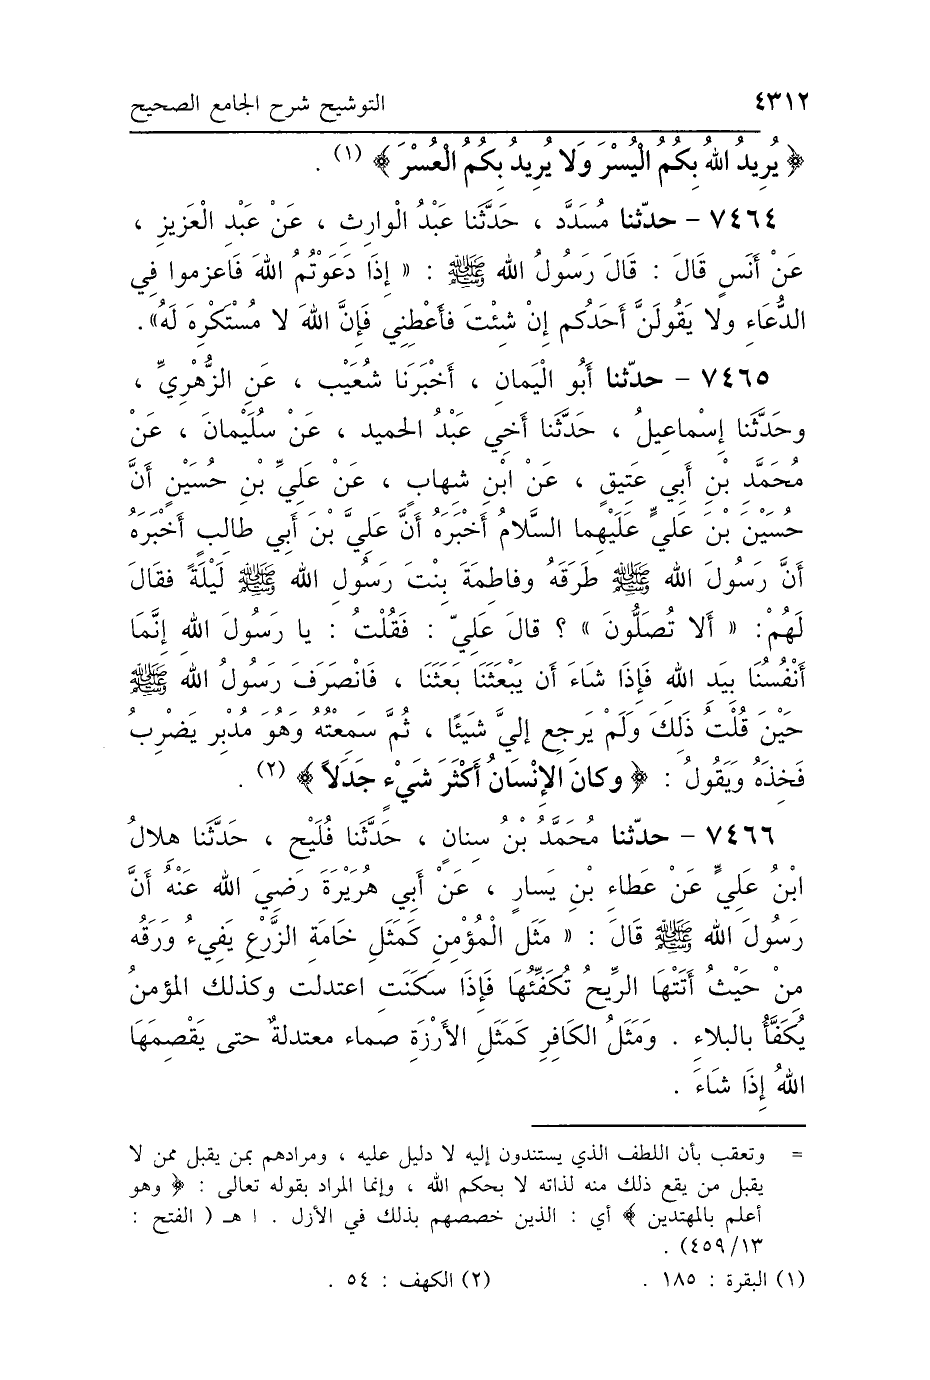 ٤٣١٢ التوشيح شرح الجامع الصحيح
﴿ يُرِيدُ اللهُ بِكُمُ الْيُسْرَ وَلا يُرِيدُ بِكُمُ الْعُسْرَ ﴾ (١) .
٧٤٦٤ - حدّثنا مُسَدَّد ، حَدَّثَنَا عَبْدُ الْوارِثِ ، عَنْ عَبْدِ الْعَزِيزِ ،
عَنْ أَنَسٍ قَالَ : قَالَ رَسُولُ اللهِ ﷺ : « إِذَا دَعَوْتُمُ اللهَ فَاعزموا فِي
الدُّعَاءِ ولا يَقُولَنَّ أَحَدُكم إِنْ شئْتَ فأَعْطِنِي فَإِنَّ اللهَ لا مُسْتَكْرِهَ لَهُ».
٧٤٦٥ - حدّثنا أَبُو الْيَمانِ ، أَخْبَرَنَا شُعَيْب ، عَنِ الزُّهْرِيِّ ،
وحَدَّثَنا إِسْماعِيلُ ، حَدَّثَنَا أَخِي عَبْدُ الحميد ، عَنْ سُلَيْمانَ ، عَنْ
مُحَمَّد بْنِ أَبِي عَتِيقٍ ، عَنْ ابْنِ شهابٍ ، عَنْ عَلِيِّ بْنِ حُسَيْنٍ أَنَّ
حُسَيْنَ بْنَ عَلِيٍّ عَلَيْهِما السَّلامُ أَخْبَرَهُ أَنَّ عَلِيَّ بْنَ أَبِي طالبٍ أَخْبَرَهُ
أَنَّ رَسُولَ اللهِ ﷺ طَرَقَهُ وفاطمَةَ بِنْتَ رَسُولِ اللهِ ﷺ لَيْلَةً فقَالَ
لَهُمْ: « أَلا تُصَلُّونَ » ؟ قالَ عَلِيّ : فَقُلْتُ : يا رَسُولَ اللهِ إِنَّمَا
أَنْفُسُنَا بِيَدِ اللهِ فَإِذَا شَاءَ أَن يَبْعَثَنَا بَعَثَنَا ، فَانْصَرَفَ رَسُولُ اللهِ ﷺ
حَيْنَ قُلْتُ ذَلكَ وَلَمْ يَرجِع إِليَّ شَيئًا ، ثُمَّ سَمِعْتُهُ وهُوَ مُدْبِر يَضْرِبُ
فَخِذَهُ وَيَقُولُ : ﴿ وكانَ الإِنْسَانُ أَكْثَرَ شَيْءٍ جَدَلاً ﴾ (٢) .
٧٤٦٦ - حدّثنا مُحَمَّدُ بْنُ سنان ، حَدَّثَنا فُلَيْح ، حَدَّثَنا هلالُ
ابْنُ عَلِيٍّ عَنْ عَطاءِ بْنِ يَسارٍ ، عَنْ أَبِي هُرَيْرَةَ رَضِيَ اللهُ عَنْهُ أَنَّ
رَسُولَ اللهِ ﷺ قَالَ : « مَثَل الْمُؤْمِنِ كَمَثَلِ خامَةِ الزَّرْعِ يَفِيءُ ورَقُه
مِنْ حَيْثُ أَتَتْهَا الرِّيحُ تُكَفِّئُهَا فَإِذَا سَكَنَت اعتدلت وكذلك المؤمنُ
يُكَفَّأُ بالبلاءِ . وَمَثَلُ الكافِرِ كَمَثَلِ الأَرْزَةِ صماء معتدلةٌ حتى يَقْصِمَهَا
اللهُ إِذَا شَاءَ .
= وتعقب بأن اللطف الذي يستندون إليه لا دليل عليه ، ومرادهم بمن يقبل ممن لا
يقبل من يقع ذلك منه لذاته لا بحكم الله ، وإنما المراد بقوله تعالى : ﴿ وهو
أعلم بالمهتدين ﴾ أي : الذين خصصهم بذلك في الأزل . ا هـ ( الفتح :
٤٥٩/١٣) .
(١) البقرة : ١٨٥ . (٢) الكهف : ٥٤ .